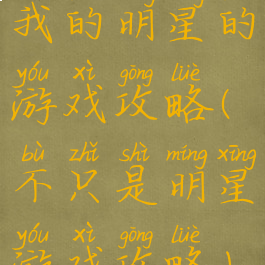 我的明星的
yóu xì gōng lüè
游戏攻略(
bù zhǐ shì míng xīng
不只是明星
yóu xì gōng lüè
游戏攻略)